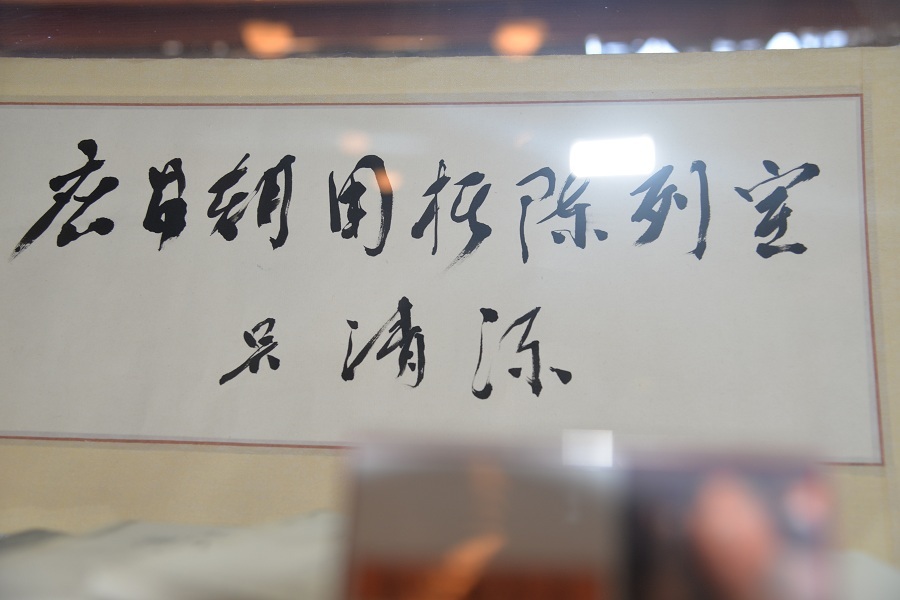 应昌期围棋陈列室
吴清源